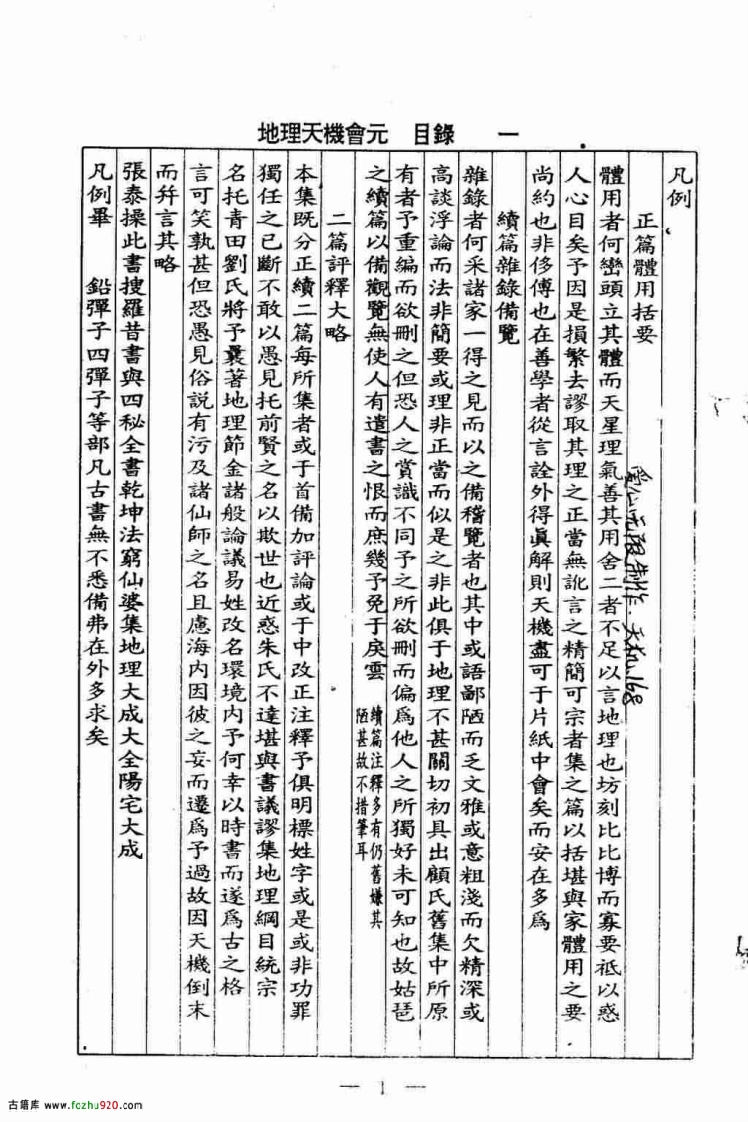 地理天機會元　目錄　一
凡例
正篇體用括要
體用者何巒頭立其體而天星理氣善其用舍二者不足以言地理也坊刻比比博而寡要祗以惑
人心目矣予因是損繁去謬取其理之正當無訛言之精簡可宗者集之篇以括堪輿家體用之要
尚約也非侈博也在善學者從言詮外得眞解則天機盡可于片紙中會矣而安在多爲
續篇雜錄備覽
雜錄者何采諸家一得之見而以之備稽覽者也其中或語鄙陋而乏文雅或意粗淺而欠精深或
高談浮論而法非簡要或理非正當而似是之非此俱于地理不甚關切初具出顧氏舊集中所原
有者予重編而欲刪之但恐人之賞識不同予之所欲刪而偏爲他人之所獨好未可知也故姑琶
之續篇以備觀覽無使人有遺書之恨而庶幾予免于戾雲
續篇注釋多有仍舊嫌其
陋甚故不措筆耳
二篇評釋大略
本集既分正續二篇每所集者或于首備加評論或于中改正注釋予俱明標姓字或是或非功罪
獨任之已斷不敢以愚見托前賢之名以欺世也近惑朱氏不達堪與書議謬集地理綱目統宗
名托青田劉氏將予曩著地理節金諸般論議易姓改名環境內予何幸以時書而遂爲古之格
言可笑孰甚但恐愚見俗説有污及諸仙師之名且慮海内因彼之妄而遷爲予過故因天機倒末
而幷言其略
張泰操此書搜羅昔書與四秘全書乾坤法竅仙婆集地理大成大全陽宅大成
凡例畢　鉛彈子四彈子等部凡古書無不悉備弗在外多求矣
天机168
— 1 —
古籍库 www.fczhu920.com